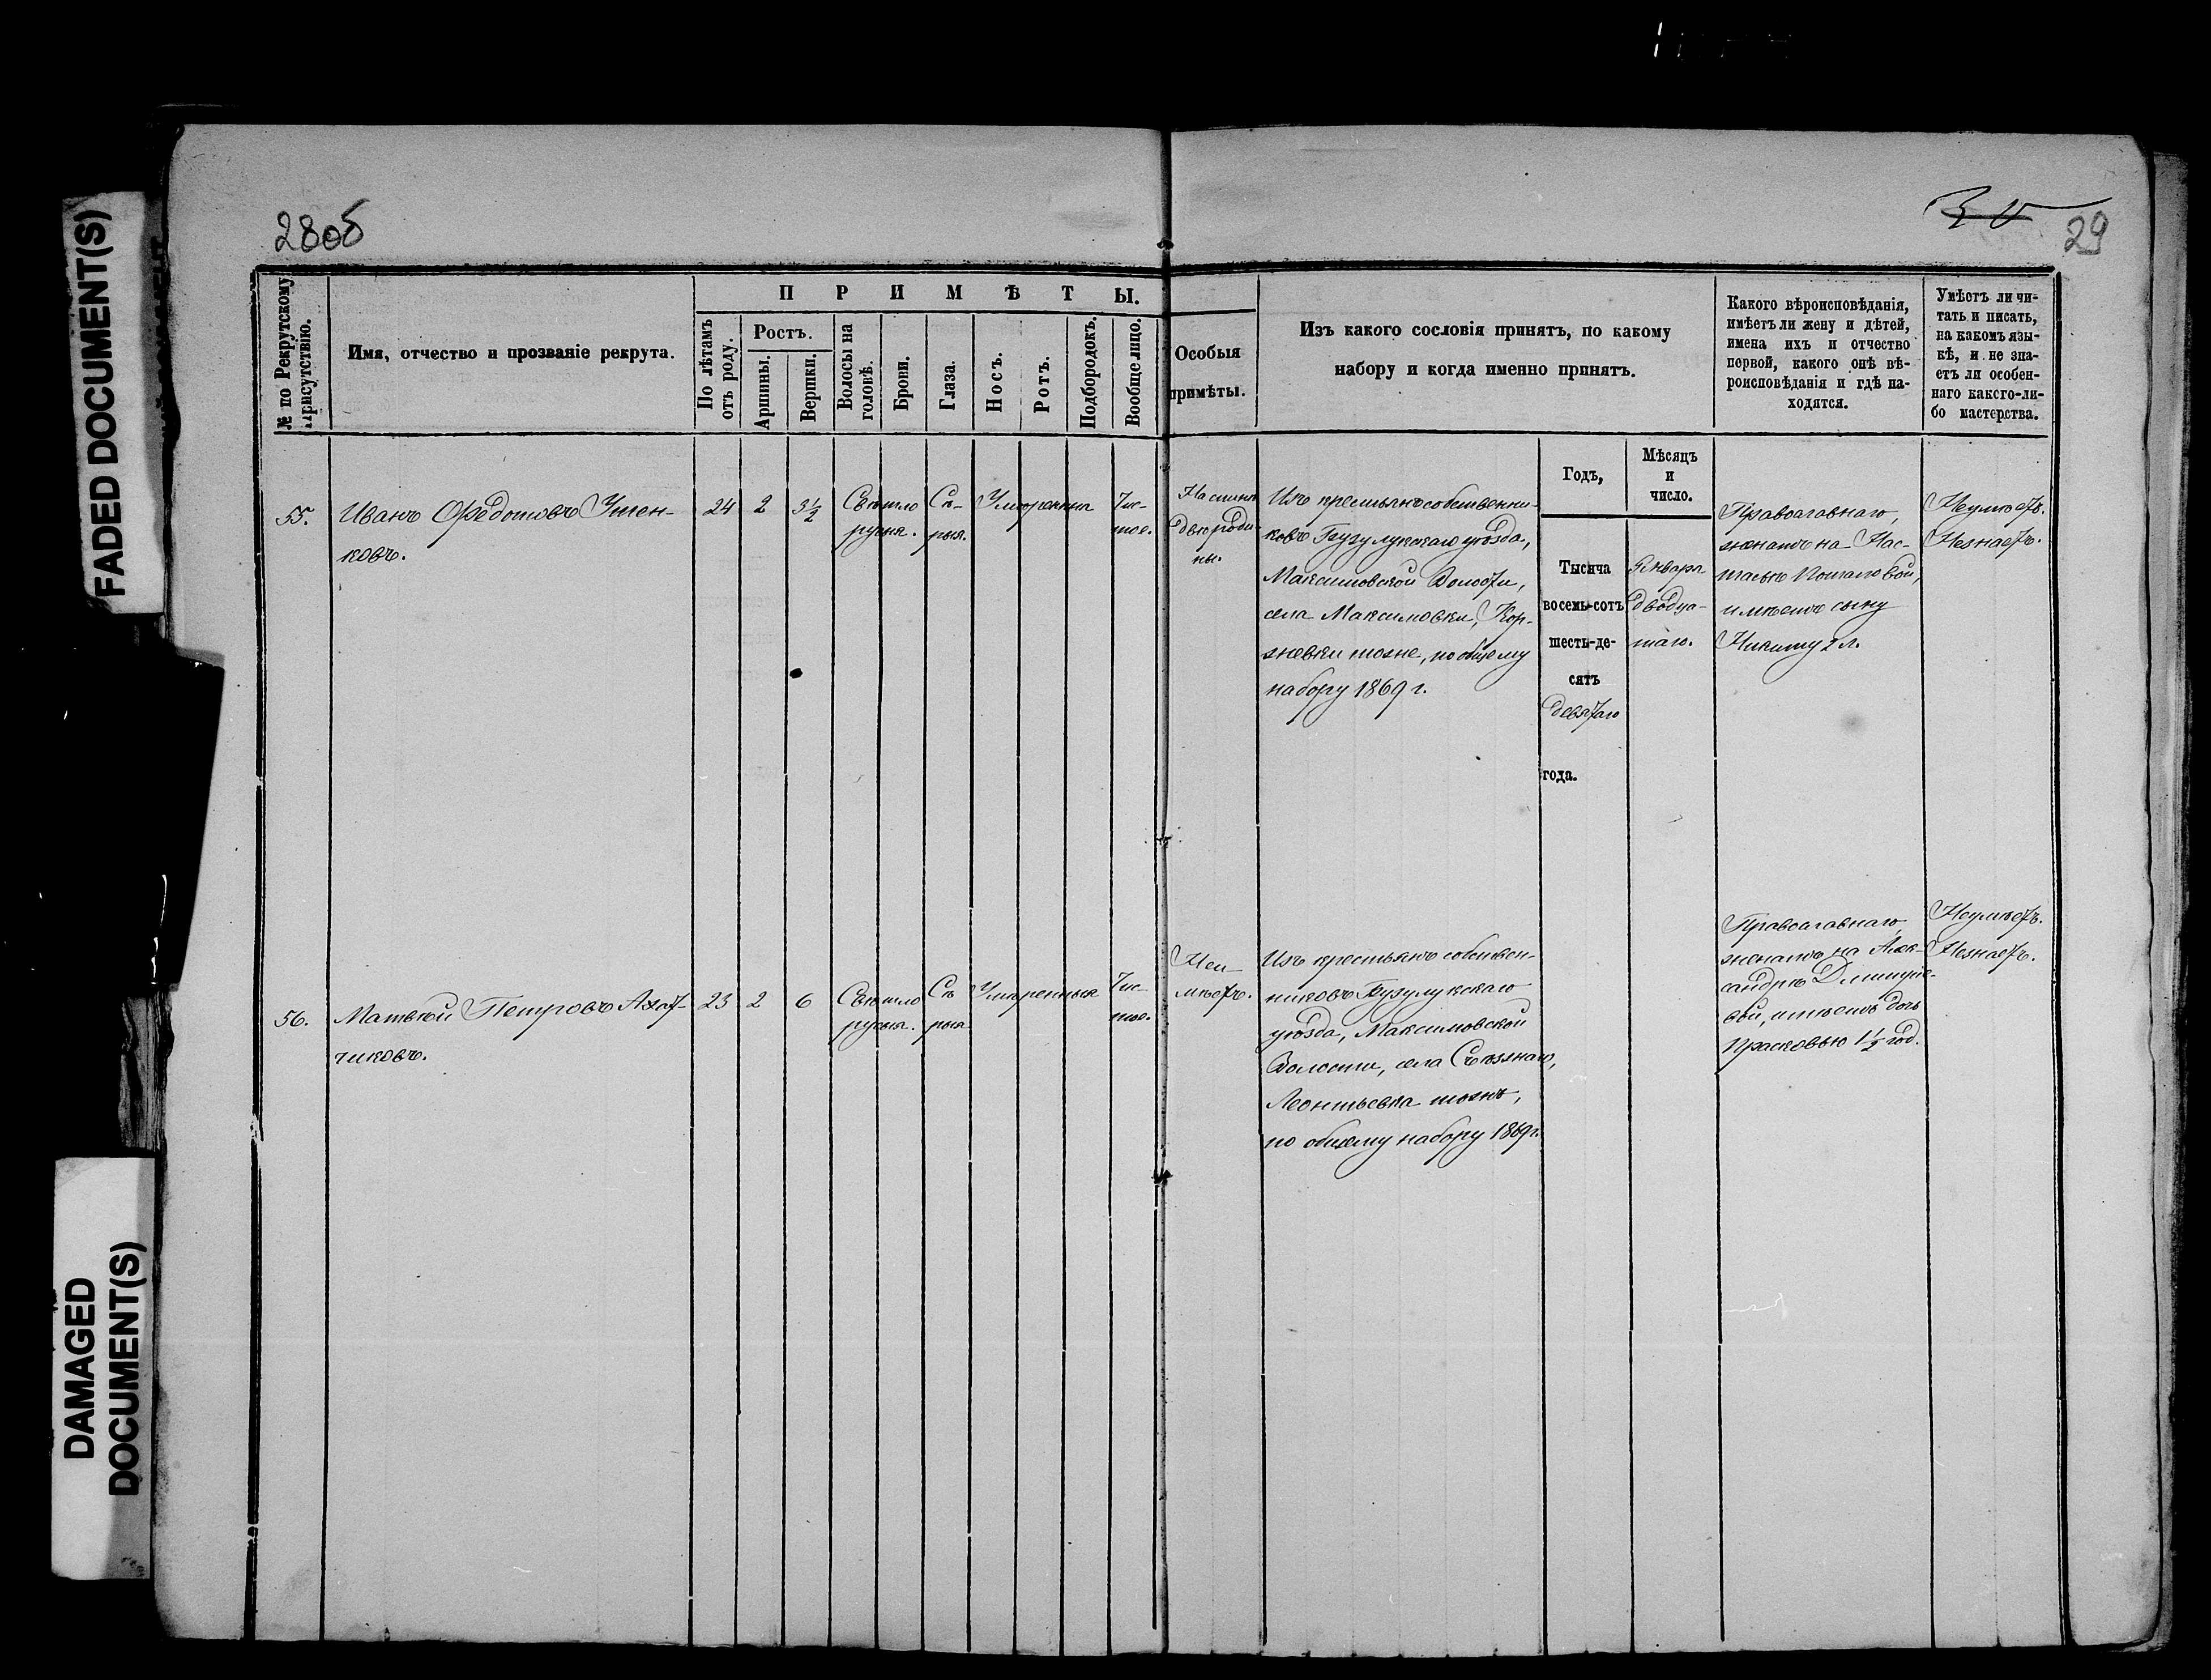 FADED DOCUMENT(S)
DAMAGED
DOCUMENT(S)
28об
29
№ по Рекрутскому
присутствію.
Имя, отчество и прозваніе рекрута.
ПРИМѢТЫ.
По лѣтамъ
отъ роду.
Ростъ.
Аршины.
Вершки.
Волосы на
головѣ.
Брови.
Глаза.
Носъ.
Ротъ.
Подбородокъ.
Вообще лицо.
Особыя
примѣты.
Изъ какого сословія принятъ, по какому
набору и когда именно принятъ.
Какого вѣроисповѣданія,
имѣетъ ли жену и дѣтей,
имена ихъ и отчество
первой, какого онѣ вѣ-
роисповѣданія и гдѣ на-
ходятся.
Умѣетъ ли чи-
тать и писать,
на какомъ язы-
кѣ, и не зна-
етъ ли особен-
наго какого-ли-
бо мастерства.
Годъ,
Мѣсяцъ
и
число.
55.
Иванъ Ѳедотовъ Утен-
ковъ.
24
2
3½
Свѣтло
русыя.
Сѣ-
рыя.
Умѣренныя
Чис-
тое.
На спинѣ
двѣ роди-
ны.
Изъ крестьянъ собственни-
ковъ Бузулукскаго уѣзда,
Максимовской Волости,
села Максимовки, Кор-
жневки тоже, по общему
набору 1869 г.
Тысяча
восемь-сотъ
шесть-де-
сятъ
девятаго
года.
Января
двадца-
таго.
Православнаго,
женатъ на Нас-
тасьѣ Потаповой,
имѣетъ сыну
Никиту 2 л.
Неумѣетъ.
Незнаетъ.
56.
Матвѣй Петровъ
чиковъ.
23
2
6
Свѣтло
русыя.
Сѣ
рыя
Умѣренныя
Чис-
тое.
Неи-
мѣетъ.
Изъ крестьянъ собствен-
никовъ Бузулукскаго
уѣзда, Максимовской
Волости, села Съѣзжаго,
Леонтьевка тожъ,
по общему набору 1869 г.
Православнаго,
женатъ на Алек-
сандрѣ Дмитріе-
вой, имѣетъ дочь
Прасковью 1½ год.
Неумѣетъ.
Незнаетъ.